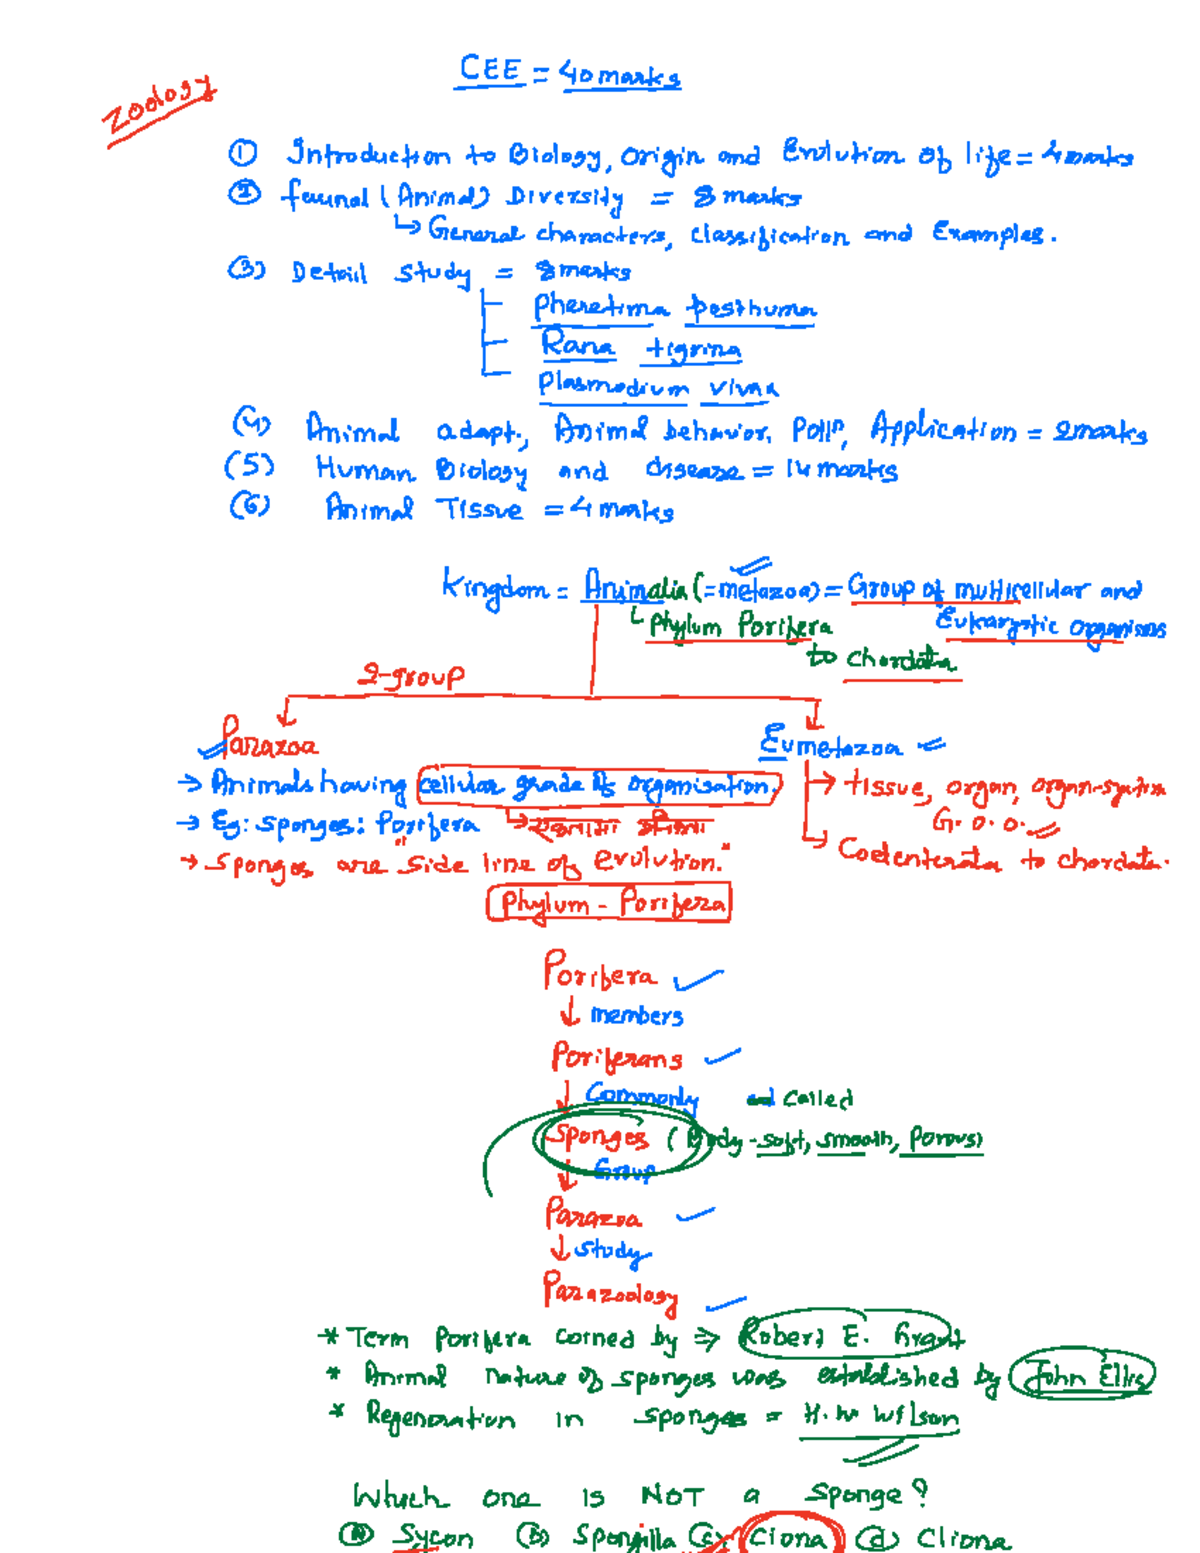 CEE = 40 marks
Zoology
① Introduction to Biology, Origin and Evolution of life = 4 marks
② faunal (Animal) Diversity = 8 marks
↳ General characters, classification and Examples.
(3) Detail study = 8 marks
Pheretima posthuma
Rana tigrina
Plasmodium vivax
(4) Animal adapt., Animal behavior, Pollⁿ, Application = 2 marks
(5) Human Biology and disease = 14 marks
(6) Animal Tissue = 4 marks
Kingdom = Animalia (= metazoa) = Group of multicellular and
Eukaryotic organisms
↳ Phylum Porifera
to chordata
2-group
Parazoa
Eumetazoa
→ Animals having cellular grade of organisation.
→ Tissue, organ, organ-system
G. O. O.
→ Eg: sponges: Porifera
→ Coelenterata to chordata.
→ Sponges are "side line of evolution."
Phylum - Porifera
Porifera
↓ members
Poriferans
↓ Commonly called
Sponges (Body - soft, smooth, Porous)
↓ Group
Parazoa
↓ study
Parazoology
* Term Porifera coined by ⇒ Robert E. Grant
* Animal nature of sponges was established by John Ellis
* Regeneration in sponges = H.W Wilson
Which one is NOT a sponge?
(a) Sycon (b) Spongilla (c) Ciona (d) Cliona